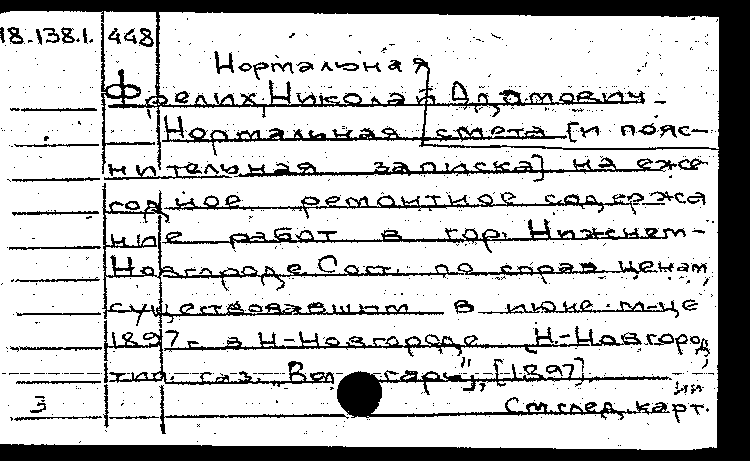 18.138.1. 448
Нормальная
Фрелих, Николай Адамович.
Нормальная смета [и пояс-
нительная записка] на еже
годное ремонтное содержа
ние работ в гор. Нижнем-
Новгороде Сост. по справ ценам,
существовавшим в июне м-це
1897 г. в Н-Новгороде. Н-Новгород,
тип. газ. "Волгарь", [1897].
3 См. след. карт.